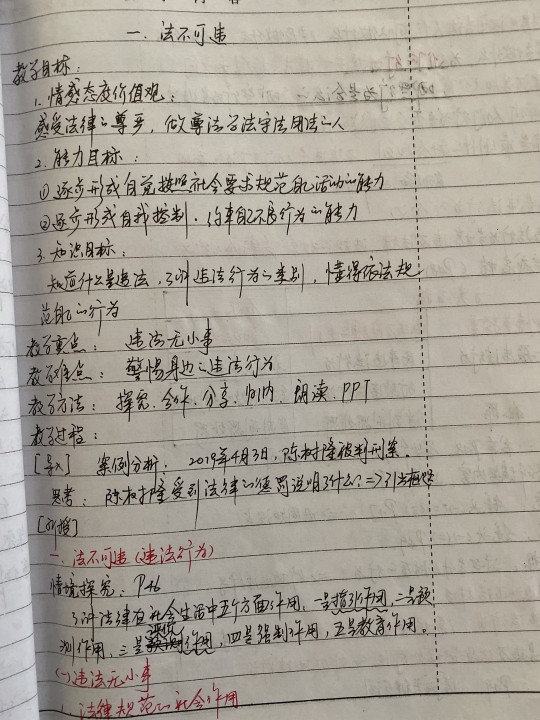 一、法不可违
教学目标：
1. 情感态度价值观：
感受法律的尊严，做尊法学法守法用法的人
2. 能力目标：
①逐步形成自觉按照社会要求规范自己活动的能力
②逐步形成自我控制，约束自己不良行为的能力
3. 知识目标：
知道什么是违法，了解违法行为的类别，懂得依法规
范自己的行为
教学重点： 违法无小事
教学难点： 警惕身边的违法行为
教学方法： 探究、合作、分享、归内、朗读、PPT
教学过程：
[导入] 案例分析：2019年4月3日，陈树隆被判刑案。
思考：陈树隆受到法律的惩罚说明了什么？=>引出
[新授]
一、法不可违（违法行为）
情境探究：P46
了解法律在社会生活中五个方面作用，一是指引作用，二是预
测作用，三是评价作用，四是强制作用，五是教育作用。
(一)违法无小事
1. 法律规范的社会作用